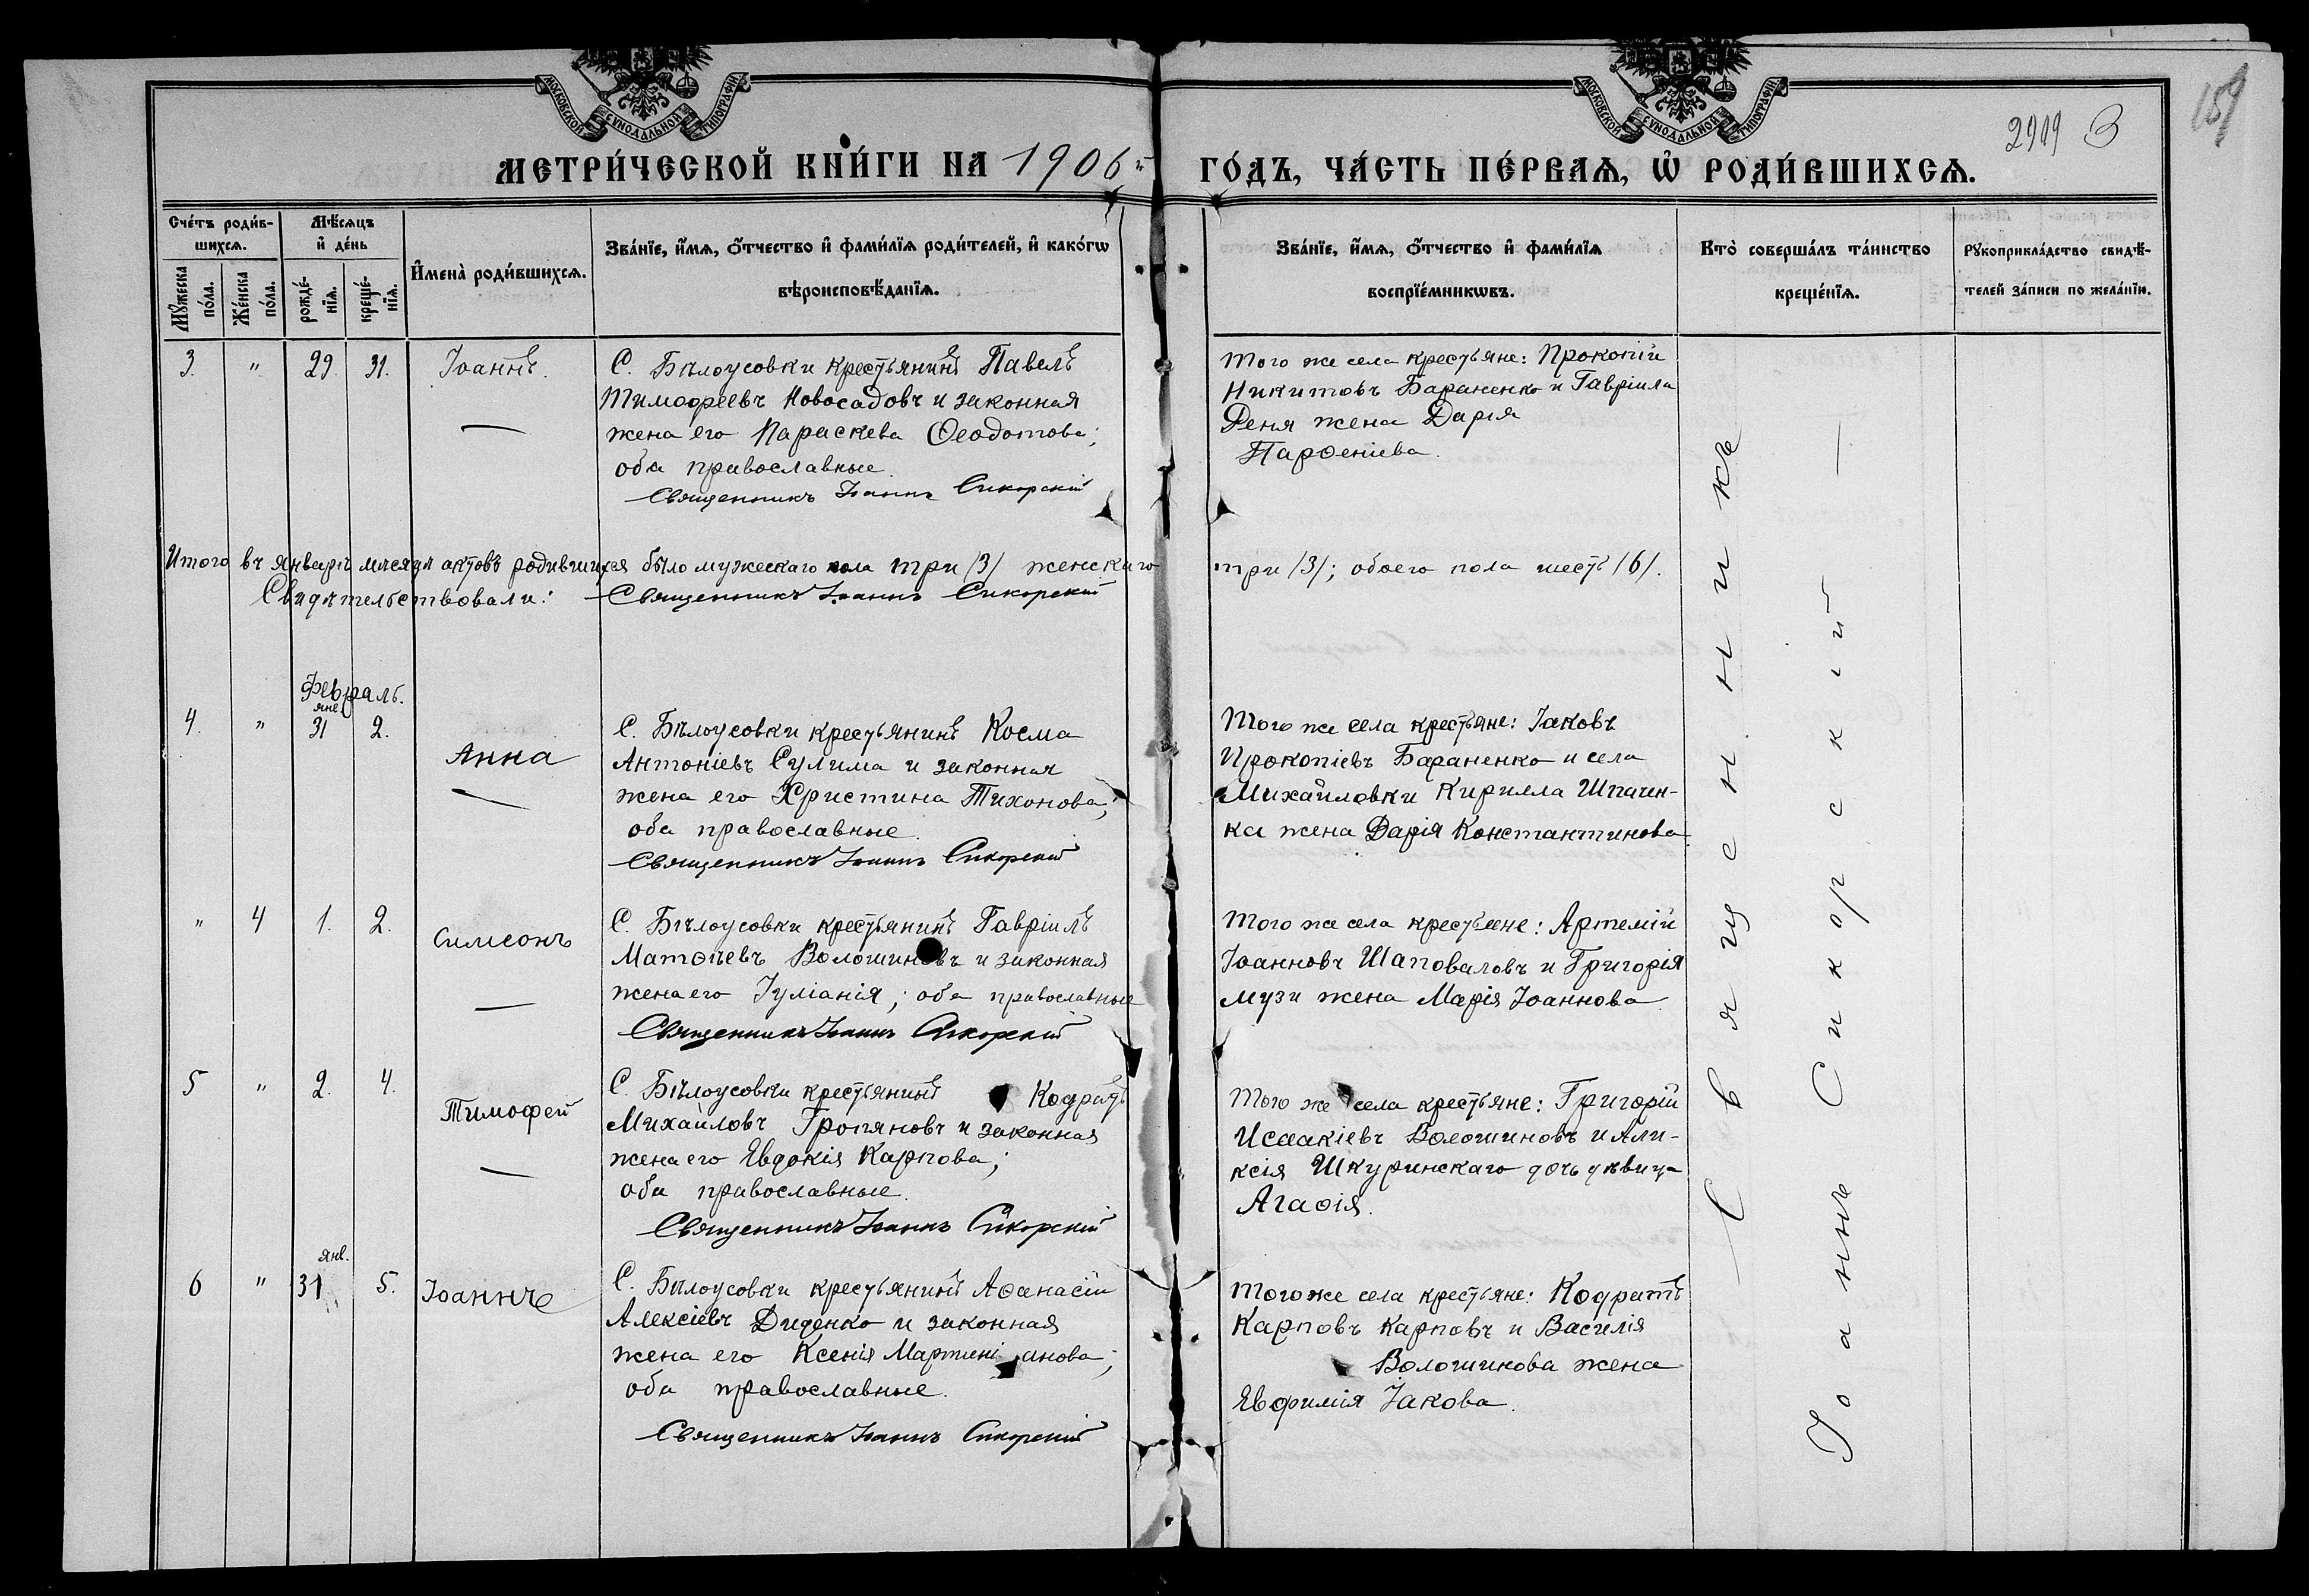 МОСКОВСКОЙ СУНОДАЛЬНОЙ ТИПОГРАФІИ
МОСКОВСКОЙ СУНОДАЛЬНОЙ ТИПОГРАФІИ
2909 3
159
МЕТРИ́ЧЕСКОЙ КНИ́ГИ НА 1906 ГО́ДЪ, ЧА́СТЬ ПЕ́РВАѦ, Ѡ҆ РОДИ́ВШИХСѦ.
Сче́тъ роди́в-
шихсѧ.
Мꙋ́жеска
по́ла.
Же́нска
по́ла.
Мѣ́сѧцъ
и҆ де́нь
рожде́-
нїѧ.
креще́-
нїѧ.
И҆мена̀ роди́вшихсѧ.
Зва́нїе, и҆́мѧ, ѻ҆́тчество и҆ фами́лїѧ роди́телей, и҆ како́гѡ
вѣроисповѣ́данїѧ.
Зва́нїе, и҆́мѧ, ѻ҆́тчество и҆ фами́лїѧ
воспрїе́мникѡвъ.
Кто̀ соверша́лъ та́инство
креще́нїѧ.
Рꙋкоприкла́дство свидѣ́-
телей за́писи по жела́нїю.
3. " 29. 31. Іоаннъ.
С. Бѣлоусовки крестьянинъ Павелъ
Тимофеевъ Новосадовъ и законная
жена его Параскева Ѳеодотова;
оба православные.
Священникъ Іоаннъ Сикорскій
Того же села крестьяне: Прокопій
Никитовъ Бараненко и Гавріила
Деня жена Дарія
Парѳеніева.
Итого въ январѣ мѣсяцѣ актовъ родившихся было мужескаго пола три /3/ женскаго три /3/; обоего пола шесть /6/.
Свидѣтельствовали: Священникъ Іоаннъ Сикорскій
Февраль.
янв.
4. " 31 2. Анна
С. Бѣлоусовки крестьянинъ Косма
Антоніевъ Сулима и законная
жена его Христина Тихонова;
оба православные.
Священникъ Іоаннъ Сикорскій
Того же села крестьяне: Іаковъ
Прокопіевъ Бараненко и села
Михайловки Кирилла Шпачен-
ка жена Дарія Константинова.
" 4 1. 2. Симеонъ
С. Бѣлоусовки крестьянинъ Гавріилъ
Матѳѣевъ Волошиновъ и законная
жена его Іуліанія; оба православные
Священникъ Іоаннъ Сикорскій
Того же села крестьяне: Артемій
Іоанновъ Шаповаловъ и Григорія
Музи жена Марія Іоаннова
5 " 2. 4. Тимофей
С. Бѣлоусовки крестьянинъ Кодратъ
Михайловъ Гропяновъ и законная
жена его Евдокія Карпова;
оба православные.
Священникъ Іоаннъ Сикорскій
Того же села крестьяне: Григорій
Исаакіевъ Волошиновъ и Але-
ксія Шкуринскаго дочь дѣвица
Агаѳія.
янв.
6 " 31 5. Іоаннъ
С. Бѣлоусовки крестьянинъ Аѳанасій
Алексіевъ Диденко и законная
жена его Ксенія Мартиніанова;
оба православные.
Священникъ Іоаннъ Сикорскій
Того же села крестьяне: Кодратъ
Карповъ Карповъ и Василія
Волошинова жена
Евфимія Іакова.
Священникъ
Іоаннъ Сикорскій